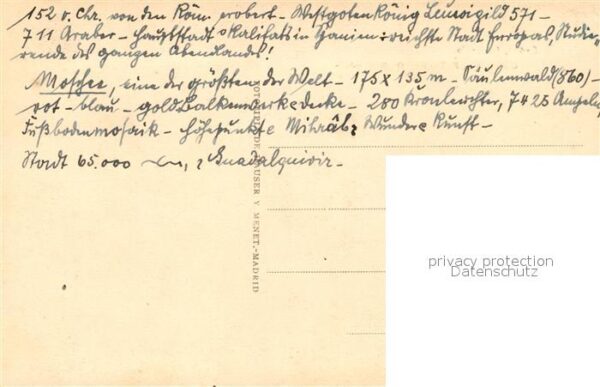 152 v. Chr. von den Röm. erobert – Westgotenkönig Leuvigild 571 –
711 Araber – Hauptstadt d. Kalifats in Spanien: reichste Stadt Europas, Studie-
rende des ganzen Abendlandes!
Moschee, eine der größten der Welt – 175 x 135 m – Säulenwald (860) –
rot – blau – gold Balkenwerkdecke – 280 Kronleuchter, 7425 Ampeln,
Fußbodenmosaik – Höhepunkte Mihrâb: Wunder Kunst –
Stadt 65.000 Guadalquivir –
HAUSER Y MENET.-MADRID
privacy protection
Datenschutz